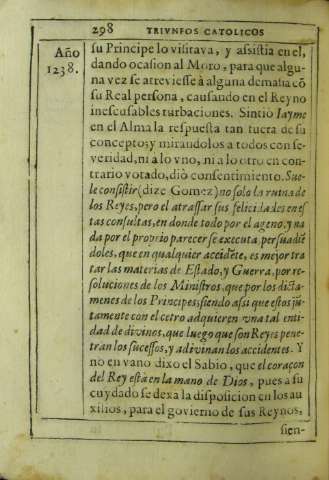 298 TRIVNFOS CATOLICOS
Año
1238.
su Principe lo visitava, y assistia en el,
dando ocasion al Moro, para que algu-
na vez se atreviesse à alguna demasia cõ
su Real persona, causando en el Reyno
inescusables turbaciones. Sintiò Iayme
en el Alma la respuesta tan fuera de su
concepto; y mirandolos a todos con se-
veridad, ni a lo vno, ni a lo otro en con-
trario votado, diò consentimiento. Sue-
le consistir (dize Gomez) no solo la ruina de
los Reyes, pero el atrassar sus felicidades en es-
tas consultas, en donde todo por el ageno, y na
da por el proprio parecer se executa, persuadiẽ
doles, que en qualquier accidẽte, es mejor tra
tar las materias de Estado, y Guerra, por re-
soluciones de los Ministros, que por los dicta-
menes de los Principes; siendo assi que estos jũ-
tamente con el cetro adquieren vna tal enti-
dad de divinos, que luego que son Reyes pene-
tran los sucessos, y adivinan los accidentes. Y
no en vano dixo el Sabio, que el coraçon
del Rey està en la mano de Dios, pues a su
cuydado se dexa la disposicion en los au
xilios, para el govierno de sus Reynos,
sien-